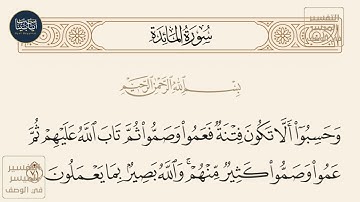 سُورَةُ المَائِدَة
بِسْمِ اللَّهِ الرَّحْمَٰنِ الرَّحِيمِ
وَحَسِبُوٓا۟ أَلَّا تَكُونَ فِتْنَةٌ فَعَمُوا۟ وَصَمُّوا۟ ثُمَّ تَابَ ٱللَّهُ عَلَيْهِمْ ثُمَّ
عَمُوا۟ وَصَمُّوا۟ كَثِيرٌ مِّنْهُمْ ۚ وَٱللَّهُ بَصِيرٌۢ بِمَا يَعْمَلُونَ ٧١
التفسير
الميسر
في الوصف